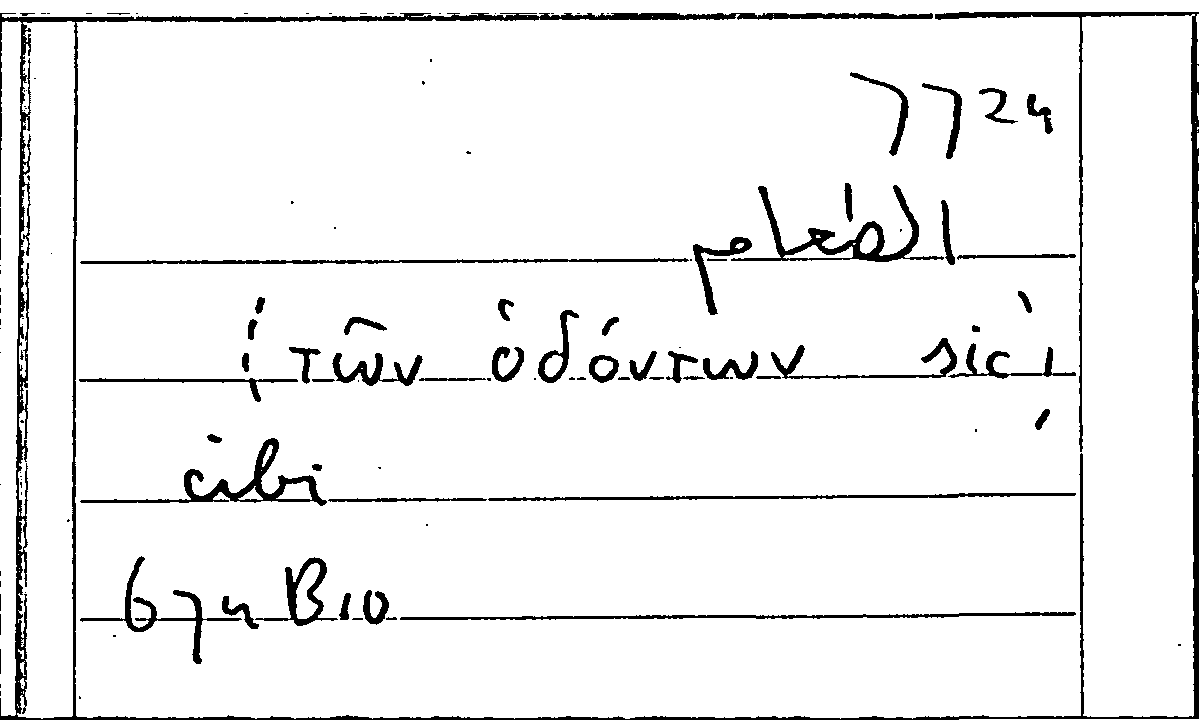 7724
الطعام
(τῶν ὁδόντων sic)
cibi
674 B10